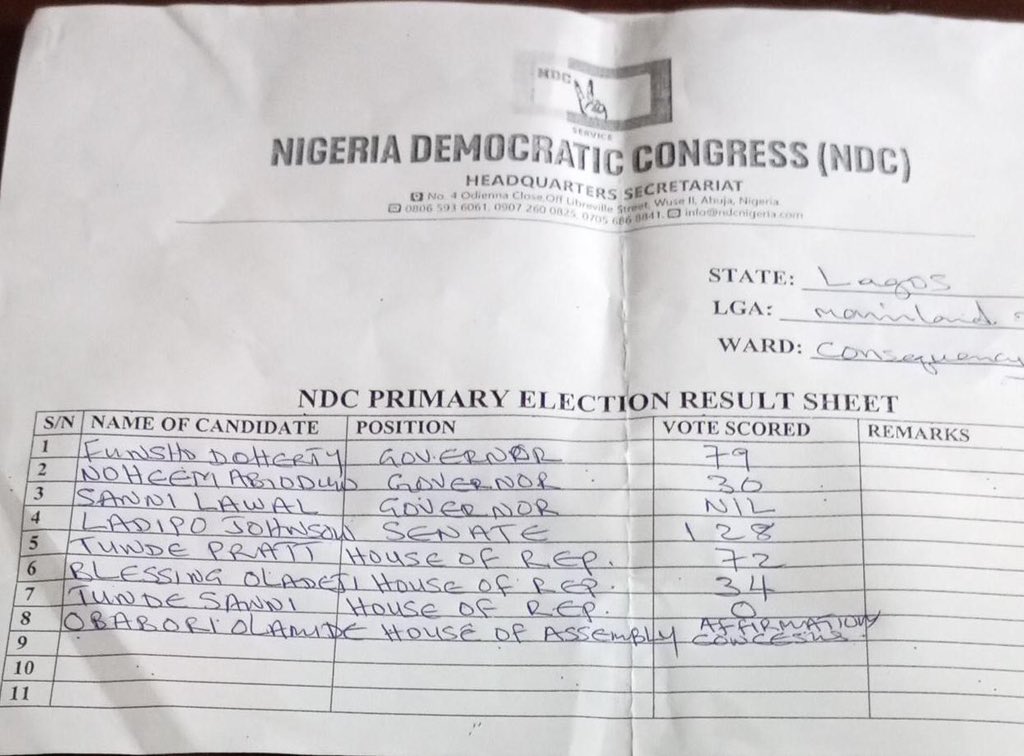 NDC
SERVICE
NIGERIA DEMOCRATIC CONGRESS (NDC)
HEADQUARTERS SECRETARIAT
No. 4 Odienna Close, Off Libreville Street, Wuse II, Abuja, Nigeria
0806 593 6061, 0907 260 0825, 0705 686 8841, info@ndcnigeria.com
STATE: Lagos
LGA: mainland
WARD: Consequency
NDC PRIMARY ELECTION RESULT SHEET
S/N NAME OF CANDIDATE POSITION VOTE SCORED REMARKS
1 FUNSHO DOHERTY GOVERNOR 79
2 NOHEEM ABIODUN GOVERNOR 30
3 SANNI LAWAL GOVERNOR NIL
4 LADIPO JOHNSON SENATE 128
5 TUNDE PRATT HOUSE OF REP. 72
6 BLESSING OLADEJI HOUSE OF REP. 34
7 TUNDE SANNI HOUSE OF REP. 0
8 OBABORI OLAMIDE HOUSE OF ASSEMBLY AFFIRMATION
9
10
11